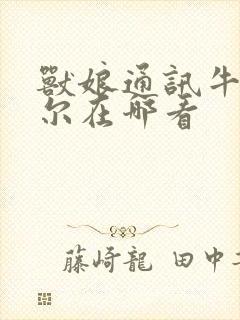 獸娘通訊牛
尔在哪看
藤崎龍 田中